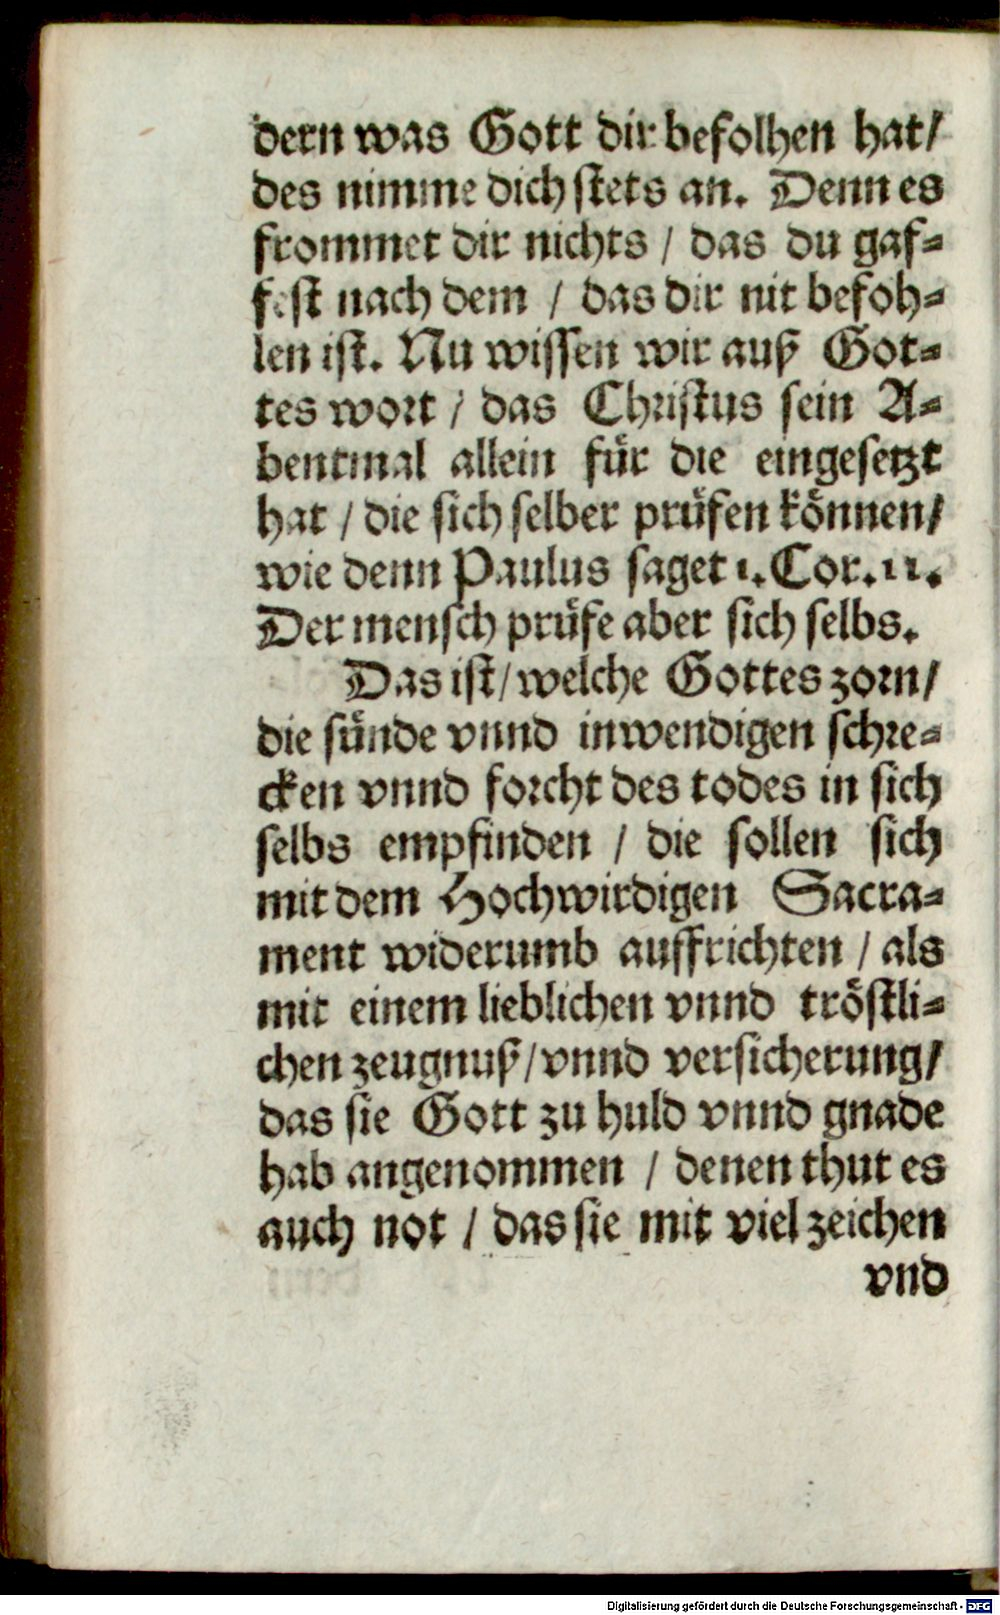 dern was Gott dir befolhen hat/
des nimme dich stets an. Denn es
frommet dir nichts / das du gaf-
fest nach dem / das dir nit befoh-
len ist. Nu wissen wir auß Got-
tes wort / das Christus sein A-
bentmal allein für die eingesetzt
hat / die sich selber prüfen können/
wie denn Paulus saget 1. Cor. 11.
Der mensch prüfe aber sich selbs.
Das ist/ welche Gottes zorn/
die sünde vnnd inwendigen schre-
cken vnnd forcht des todes in sich
selbs empfinden / die sollen sich
mit dem Hochwirdigen Sacra-
ment widerumb auffrichten / als
mit einem lieblichen vnnd tröstli-
chen zeugnuß/ vnnd versicherung/
das sie Gott zu huld vnnd gnade
hab angenommen / denen thut es
auch not / das sie mit viel zeichen
vnd
Digitalisierung gefördert durch die Deutsche Forschungsgemeinschaft - DFG